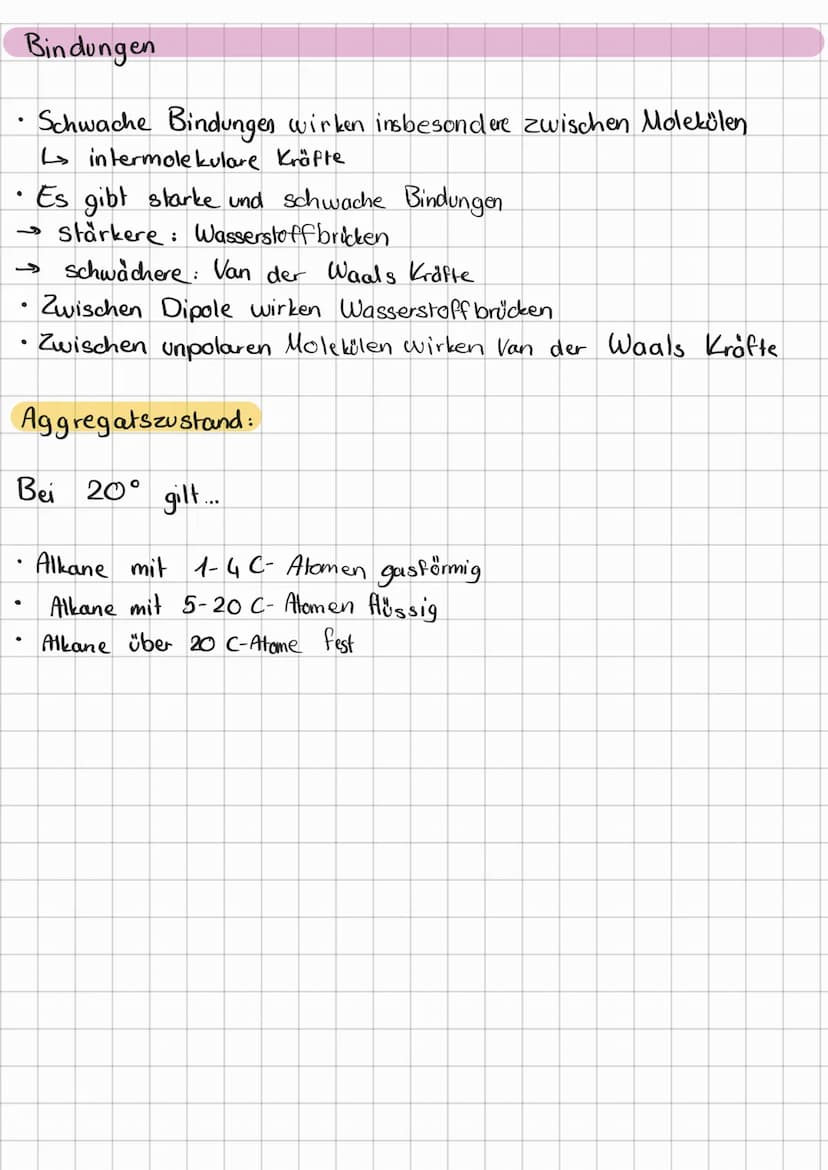 Bindungen
· Schwache Bindungen wirken insbesondere zwischen Molekülen
↳ intermolekulare Kräfte
· Es gibt starke und schwache Bindungen
→ stärkere: Wasserstoffbrücken
→ schwächere: Van der Waals Kräfte
· Zwischen Dipole wirken Wasserstoffbrücken
· Zwischen unpolaren Molekülen wirken Van der Waals Kräfte
Aggregatszustand:
Bei 20° gilt...
· Alkane mit 1-4 C- Atomen gasförmig
· Alkane mit 5-20 C- Atomen flüssig
· Alkane über 20 C-Atome fest